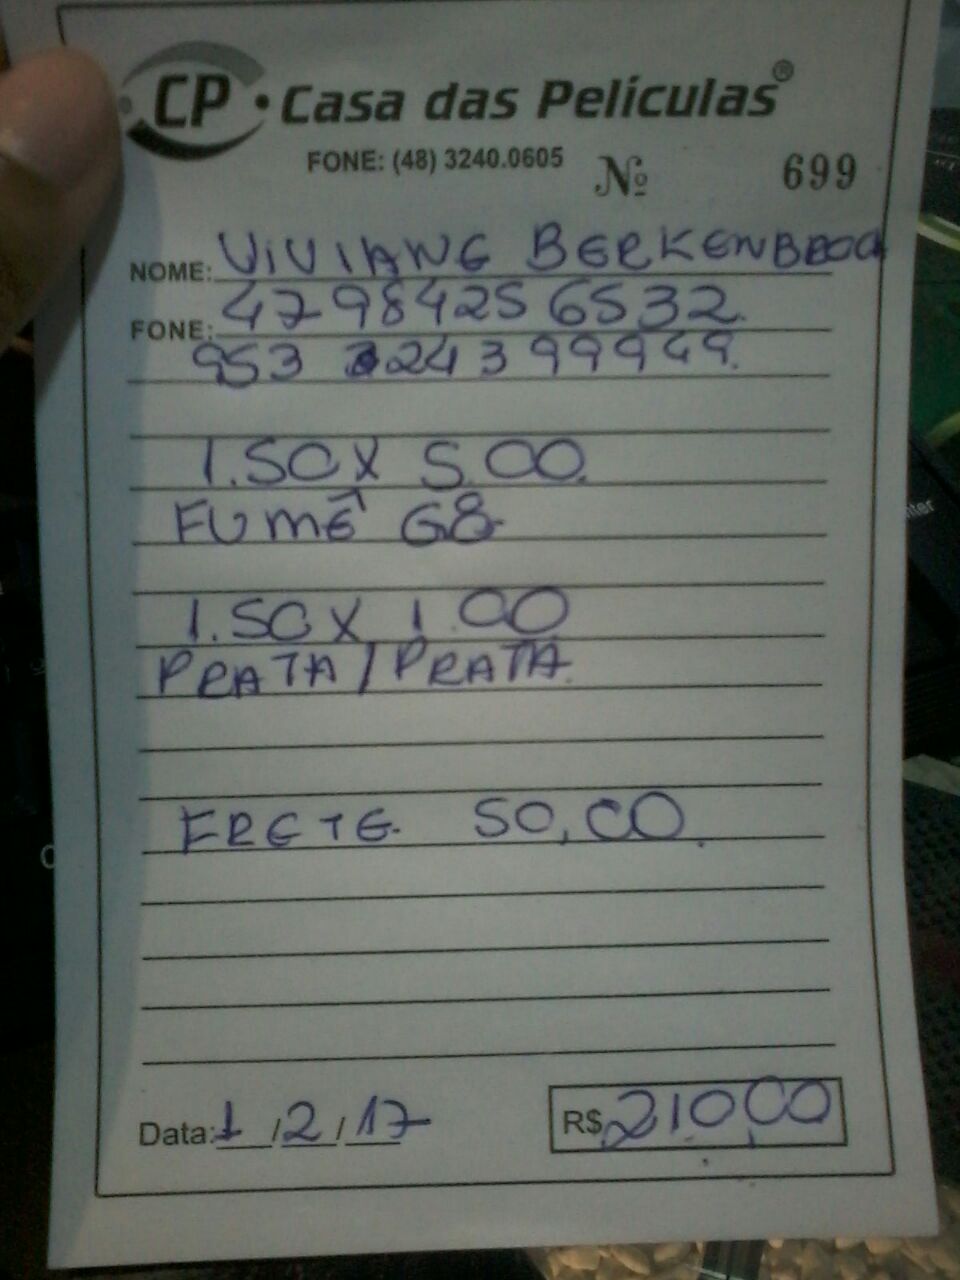 CP • Casa das Películas®
FONE: (48) 3240.0605 Nº 699
NOME: VIVIANE BERKENBROCK
FONE: 47984256532
953 3243 99949.
1.50 X 5.00.
FUMÊ G8
1.50 X 1.00
PRATA / PRATA.
FRETE. 50,00.
Data: 1 / 2 / 17 R$ 210,00